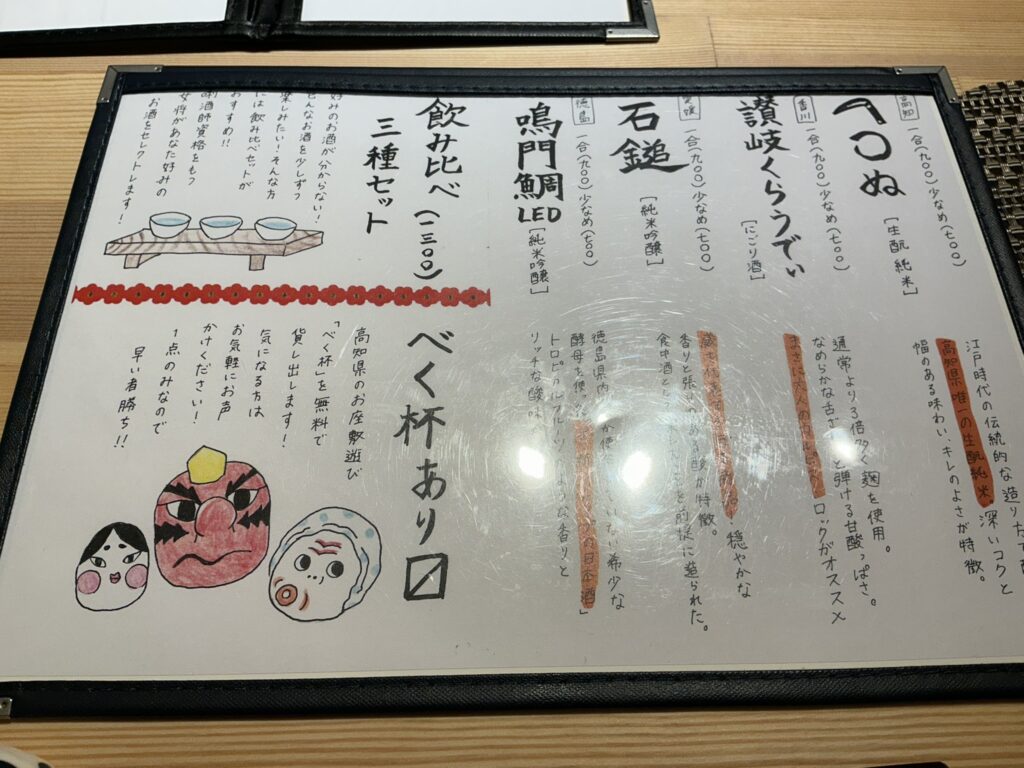 高知
一合(九〇〇)少なめ(七〇〇)
つこぬ
[生酛 純米]
江戸時代の伝統的な造り
高知県唯一の生酛純米。深いコクと
幅のある味わい、キレのよさが特徴。
香川
一合(九〇〇)少なめ(七〇〇)
讃岐くらうでぃ
[にごり酒]
通常より3倍多く麹を使用。
なめらかな舌ざ と弾ける甘酸っぱさ。
まさに大人の ロックがオススメ
愛媛
一合(九〇〇)少なめ(七〇〇)
石鎚
[純米吟醸]
穏やかな
香りと張りのある酸が特徴。
食中酒と を前提に造られた。
徳島
一合(九〇〇)少なめ(七〇〇)
鳴門鯛
LED
[純米吟醸]
徳島県内 か使 いない希少な
酵母を使 の日本酒」
トロピカルフルーツのような香りと
リッチな酸味
飲み比べ(一三〇〇)
三種セット
好みのお酒が分からない!
どんなお酒を少しずつ
楽しみたい!そんな方
には飲み比べセットが
おすすめ!!
唎酒師資格をもつ
女将があなた好みの
お酒をセレクトします!
べく杯あり〼
高知県のお座敷遊び
「べく杯」を無料で
貸し出します!
気になる方は
お気軽にお声
かけください!
1点のみなので
早い者勝ち!!